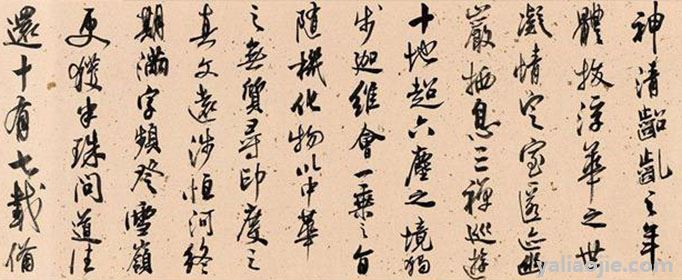 神清齠齔之年
體拔浮華之世
凝情定室匿迹幽
巖栖息三禪巡遊
十地超六塵之境獨
步迦維會一乘之旨
隨機化物以中華
之無質尋印度之
真文遠涉恒河終
期滿字頻登雪嶺
更獲半珠問道往
還十有七載備
yaliaojie.com